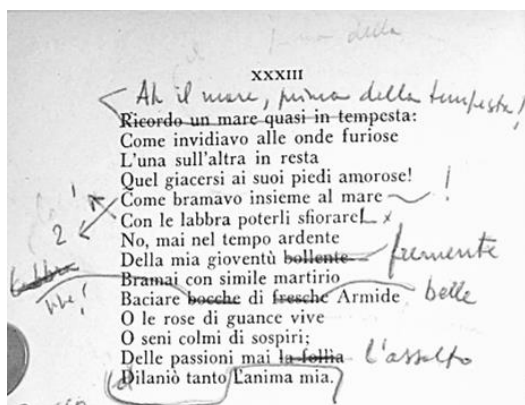 della
XXXIII
Ah il mare, prima della tempesta!
Ricordo un mare quasi in tempesta:
Come invidiavo alle onde furiose
L'una sull'altra in resta
Quel giacersi ai suoi piedi amorose!
1 Come bramavo insieme al mare !
2 Con le labbra poterli sfiorare! x
No, mai nel tempo ardente
Della mia gioventù bollente fremente
labbra Bramai con simile martirio
Baciare bocche di fresche Armide belle
O le rose di guance vive
O seni colmi di sospiri;
Delle passioni mai la follia l'assalto
Dilaniò tanto l'anima mia.